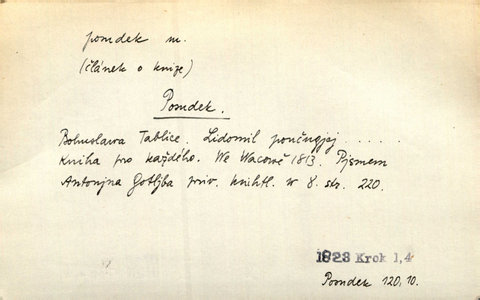 posudek m.
(článek o knize)
Posudek.
Bohuslawa Tablice. Lidomil poučugjcj .....
Kniha pro každého. We Wacowě 1813. Pjsmem
Antonjna Gotljba priv. knihtl. w 8. str. 220.
1823 Krok 1,4
Posudek 120,10.